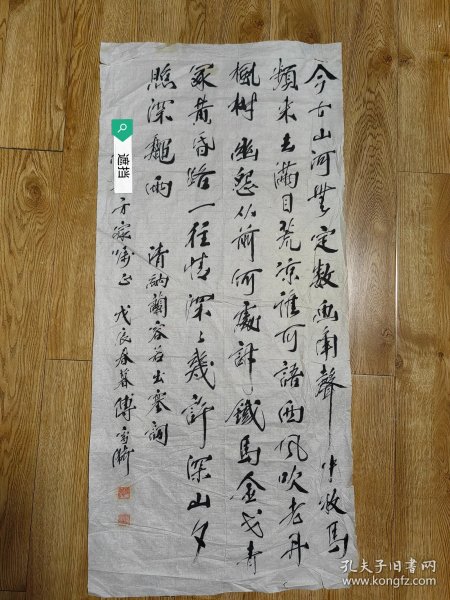 今古山河無定數画角聲中牧馬
頻来去滿目荒凉誰可語西風吹老丹
楓樹幽怨從前何處訴鐵馬金戈青
冢黄昏路一往情深々幾許深山夕
照深龝雨
清納蘭容若出塞詞
方家嘱正 戊辰春暮傅雪漪
遮挡
孔夫子旧书网
www.kongfz.com